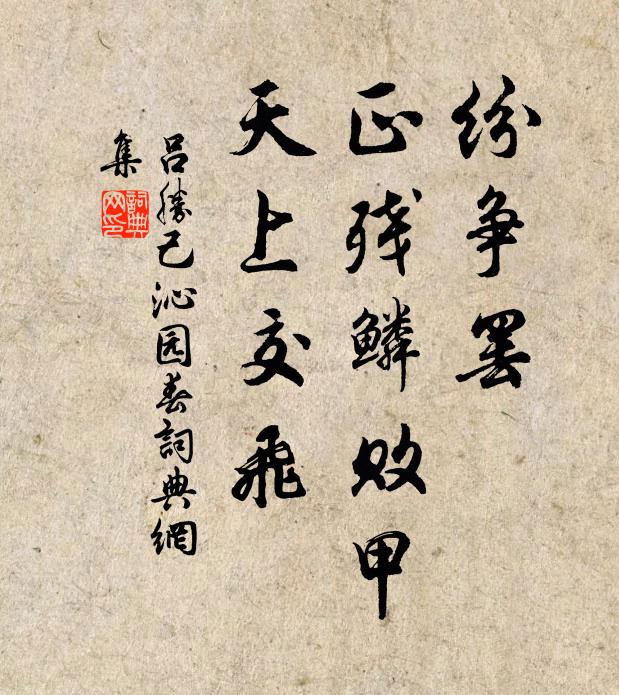 纷争罢
正残鳞败甲
天上交飞
吕勝己沁园春詞典網
集
詞典
网印